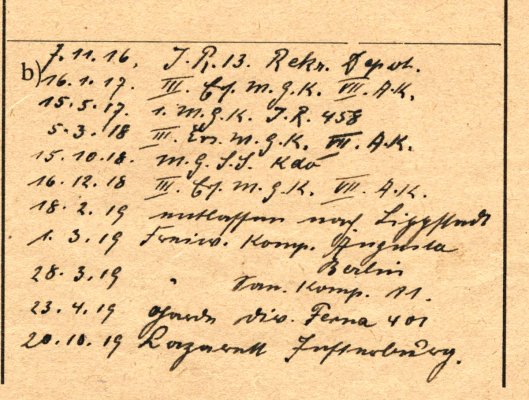 7.11.16. J.R. 13. Rekr. Depot.
b) 16.1.17. III. Ers. M.G.K. VII. A.K.
15.5.17. 1. M.G.K. J.R. 458
5.3.18 III. Ers. M.G.K. VII. A.K.
15.10.18. M.G. S.S. Kdo
16.12.18 III. Ers. M.G.K. VII. A.K.
18.2.19 entlassen nach Lippstadt
1.3.19 Freiw. Komp. Augusta
Berlin
28.3.19 " San. Komp. 11.
23.4.19 Garde Div. 401
20.10.19 Lazarett Insterburg.